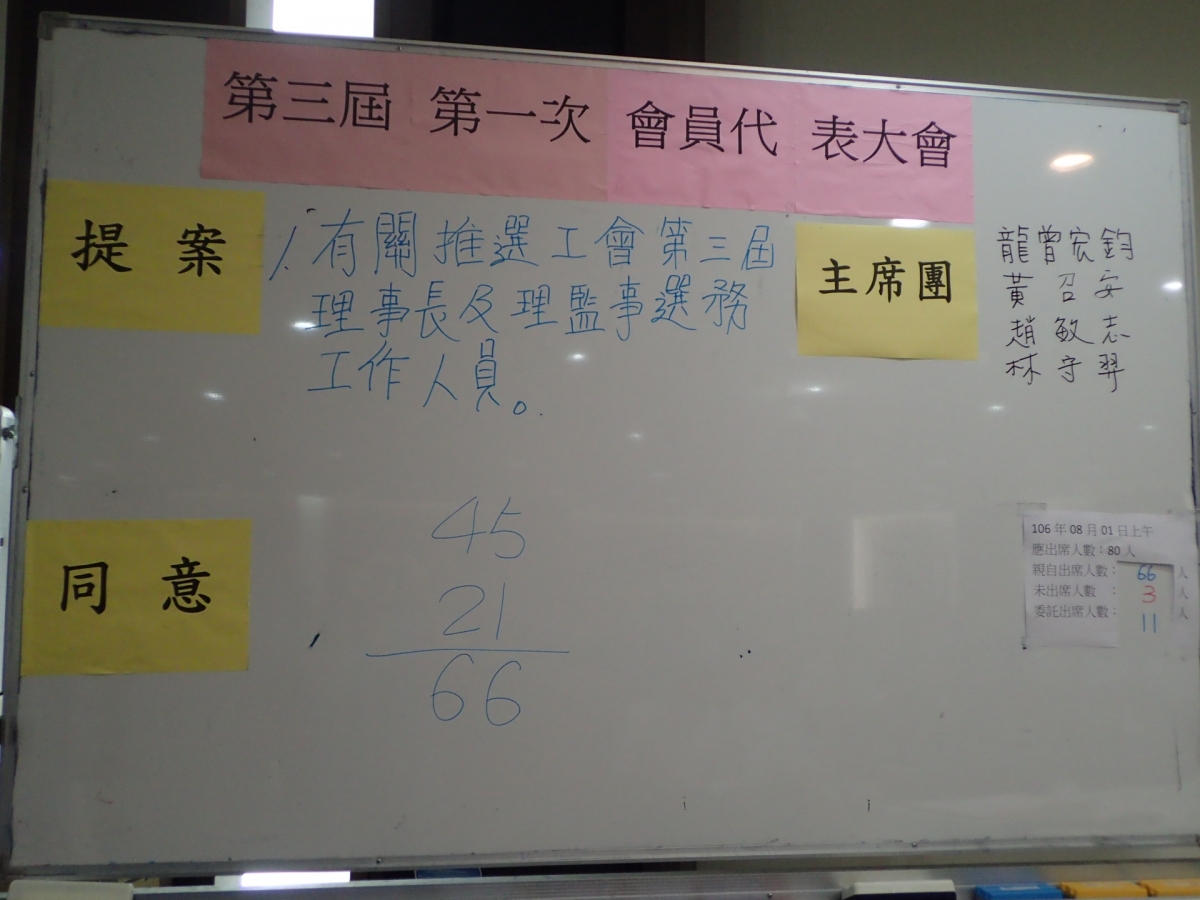 第三屆 第一次 會員代 表大會
提 案
1. 有關推選工會第三屆
理事長及理監事選務
工作人員。
主席團
龍曾宏鈞
黃召安
趙敏志
林守羿
同 意
45
21
66
106 年 08 月 01 日上午
應出席人數：80 人
親自出席人數： 66 人
未出席人數 ： 3 人
委託出席人數： 11 人